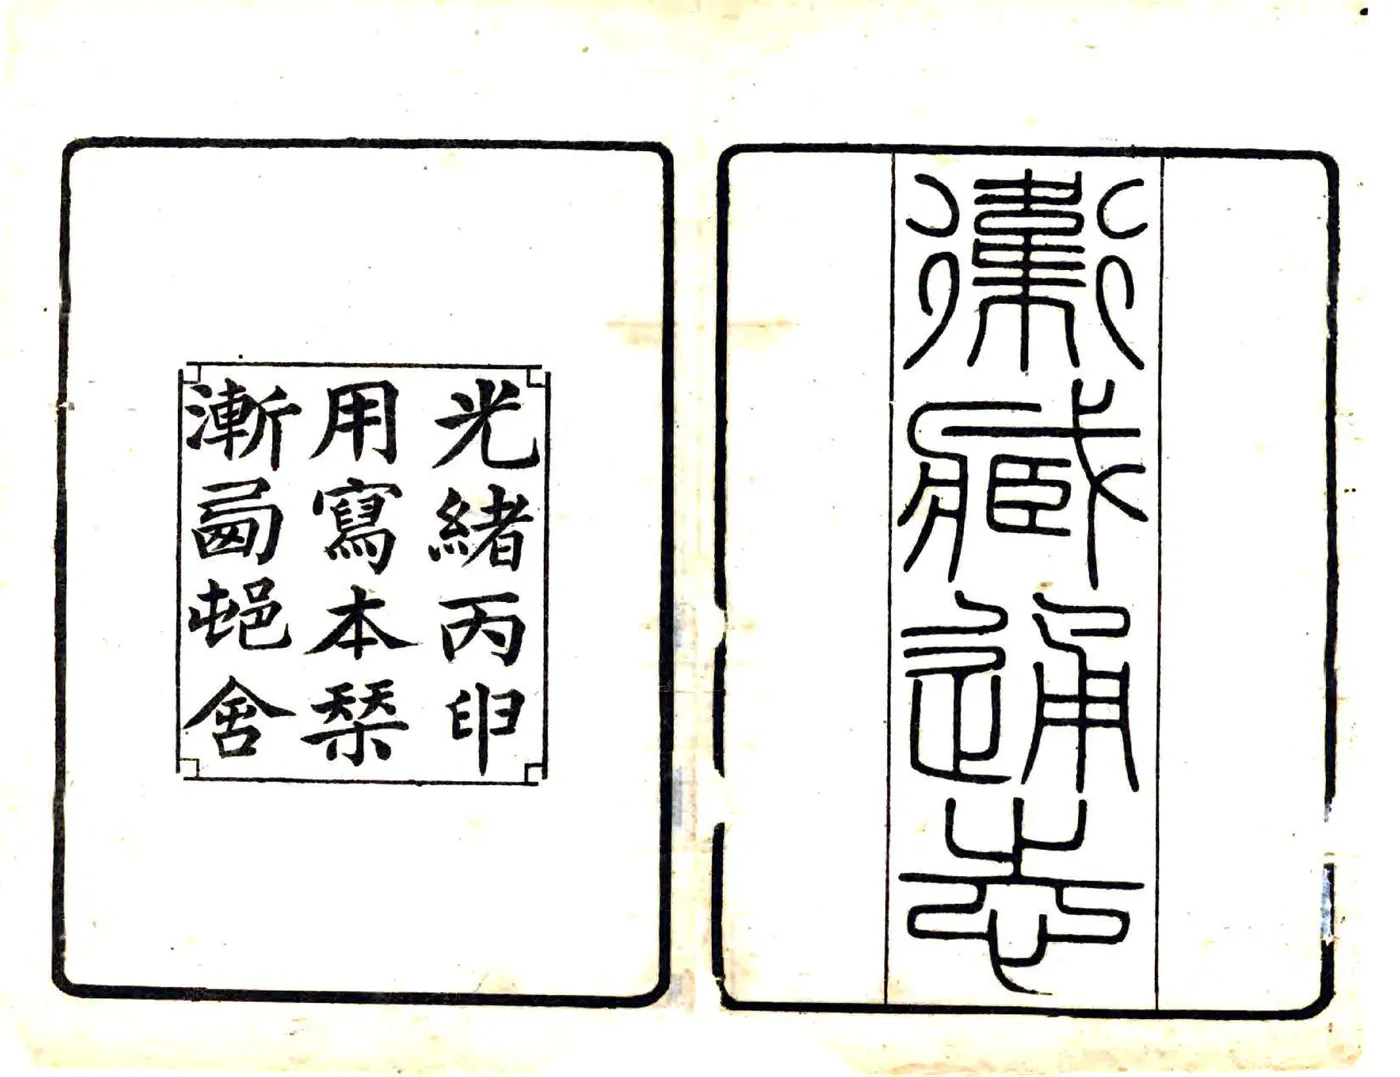 衞臧通志
光緒丙申
用寫本栞
漸卥邨舍